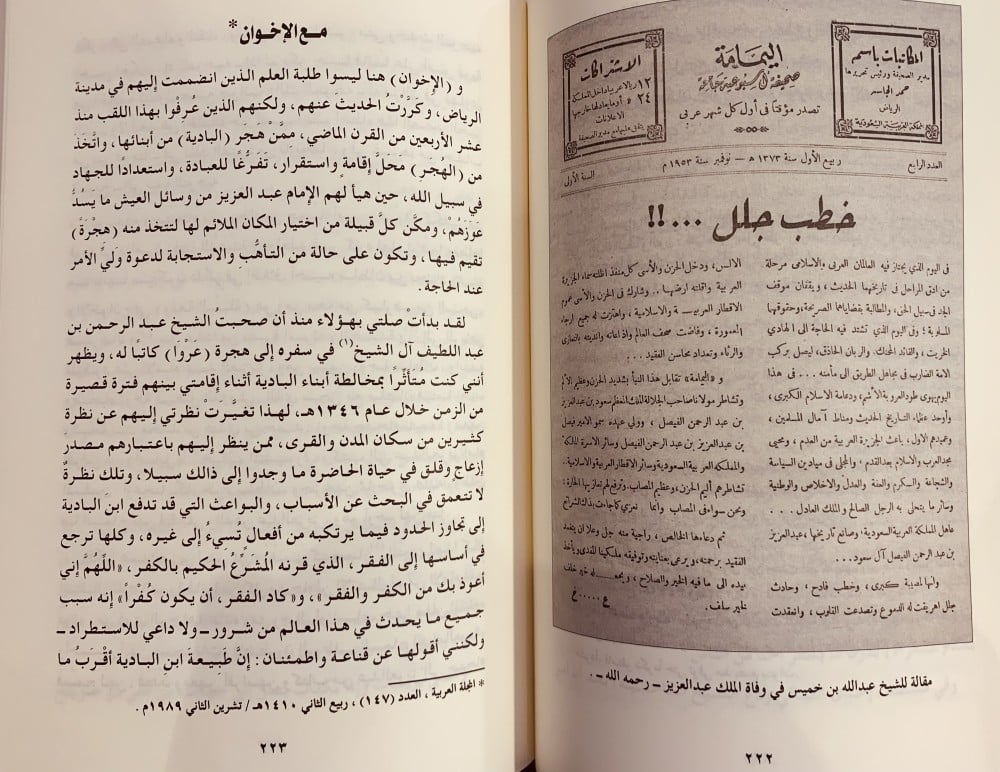 المكاتبات باسم
مدير الصحيفة ورئيس تحريرها
حمد الجاسر
الرياض
المملكة العربية السعودية
اليمامة
صحيفة أسبوعية جامعة
تصدر مؤقتاً في أول كل شهر عربي
الاشتراكات
١٢ ريالا عربيا داخل المملكة
٢٤ » أو ما يعادلها خارجها
الاعلانات
يتفق عليها مع مدير الصحيفة
العدد الرابع
ربيع الأول سنة ١٣٧٣ ه — نوفمبر سنة ١٩٥٣ م
السنة الأولى
خطب جلل ...!!
فى اليوم الذي يجتاز فيه العالمان العربي والاسلامي مرحلة
من ادق المراحل في تاريخهما الحديث ، ويقفان موقف
الجد في سبيل الحق ، والمطالبة بقضاياهما الصريحة ، وحقوقهما
المسلوبة ؛ وفى اليوم الذي تشتد فيه الحاجة الى الهادي
الخريت ، والقائد المحنك ، والربان الحاذق ، ليصل بركب
الامة الضارب فى مجاهل الطريق الى مأمنه ... فى هذا
اليوم يهوي طود العروبة الأشم ، ودعامة الاسلام الكبرى ،
وأوحد عظماء التاريخ الحديث ومناط آمال المسلمين ،
وعميدهم الاول ، باعث الجزيرة العربية من العدم ، ومحيي
مجد العرب والاسلام بعد القدم ، والمجلى فى ميادين السياسة
والشجاعة والكرم والعفة والعدل والاخلاص والوطنية
وسائر ما يتحلى به الرجل الصالح والملك العادل ...
عاهل المملكة العربية السعودية ؛ وصانع تاريخها ، عبدالعزيز
بن عبد الرحمن الفيصل آل سعود ...
وانها لمصيبة كبرى ، وخطب فادح ، وحادث
جلل اهريقت له الدموع وتصدعت القلوب ، وانعقدت
الالسن ، ودخل الحزن والأسى كل منفذ اظلته سماء الجزيرة
العربية واقلته ارضها .. وشارك فى الحزن والأسى عموم
الاقطار العربية والاسلامية ، واهتزت له جميع ارجاء
المعمورة ، وفاضت صحف العالم واذاعاته وانديته بالتعازى
والرثاء وتعداد محاسن الفقيد ...
و « اليمامة » تقابل هذا النبأ بشديد الحزن وعظيم الألم
وتشاطر مولانا صاحب الجلالة الملك المعظم سعود بن عبدالعزيز
بن عبد الرحمن الفيصل ، وولي عهده سمو الامير فيصل
بن عبدالعزيز بن عبد الرحمن الفيصل وسائر الاسرة المالكة
والمملكة العربية السعودية وسائر الاقطار العربية والاسلامية..
تشاطرهم أليم الحزن ، وعظيم المصاب ، وترفع لهم تعازيها الحارة :
ونحن سواء فى المصاب وانما نعزي كما جاءت بذاك الشرائع
ثم دعاءها الخالص ، راجية منه جل وعلا ان يتغمد
الفقيد برحمته ، ويرعى بعنايته وتوفيقه مليكنا المفدى ويأخذ
بيده الى ما فيه الخير والصلاح ، ويجعله خير خلف
لخير سلف .
ع.....خ
مقالة للشيخ عبدالله بن خميس في وفاة الملك عبدالعزيز ــ رحمه الله ــ .
٢٢٢
مع الإخوان *
و (الإخوان) هنا ليسوا طلبة العلم الذين انضممت إليهم في مدينة
الرياض، وكَرَّرْتُ الحديثَ عنهم، ولكنهم الذين عُرِفُوا بهذا اللقب منذ
عشر الأربعين من القرن الماضي، مِمَّنْ هَجَرَ (البادية) من أبنائها، واتَّخَذَ
من (الهُجَرِ) محلَّ إقامةٍ واستقرار، تَفَرُّغًا للعبادة، واستعدادًا للجهاد
في سبيل الله، حين هيأ لهم الإمام عبد العزيز من وسائل العيش ما يَسُدُّ
عَوَزَهُمْ، ومكَّن كلَّ قبيلة من اختيار المكان الملائم لها لتتخذ منه (هِجْرَةً)
تقيم فيها، وتكون على حالة من التأهُّب والاستجابة لدعوة وليِّ الأمر
عند الحاجة.
لقد بدأتْ صلتي بهؤلاء منذ أن صحبتُ الشيخ عبد الرحمن بن
عبد اللطيف آل الشيخ(١) في سفره إلى هجرة (عَرْوَا) كاتبًا له، ويظهر
أنني كنت مُتَأَثِّرًا بمخالطة أبناء البادية أثناء إقامتي بينهم فترة قصيرة
من الزمن خلال عام ١٣٤٦هـ، لهذا تغيَّرَتْ نظرتي إليهم عن نظرة
كثيرين من سكان المدن والقرى، ممن ينظر إليهم باعتبارهم مصدرَ
إزعاجٍ وقلق في حياة الحاضرة ما وجدوا إلى ذالك سبيلا، وتلك نظرةٌ
لا تتعمق في البحث عن الأسباب، والبواعث التي قد تدفع ابن البادية
إلى تجاوز الحدود فيما يرتكبه من أفعال تُسيءُ إلى غيره، وكلها ترجع
في أساسها إلى الفقر، الذي قرنه المُشَرِّعُ الحكيم بالكفر، «اللَّهُمَّ إني
أعوذ بك من الكفر والفقر»، و«كاد الفقر، أن يكون كُفْرًا» إنه سبب
جميع ما يحدث في هذا العالم من شرور ــ ولا داعي للاستطراد ــ
ولكنني أقولها عن قناعة واطمئنان: إنَّ طَبِيعةَ ابنِ البادية أَقْرَبُ ما
* المجلة العربية، العدد (١٤٧)، ربيع الثاني ١٤١٠هـ/ تشرين الثاني ١٩٨٩م .
٢٢٣